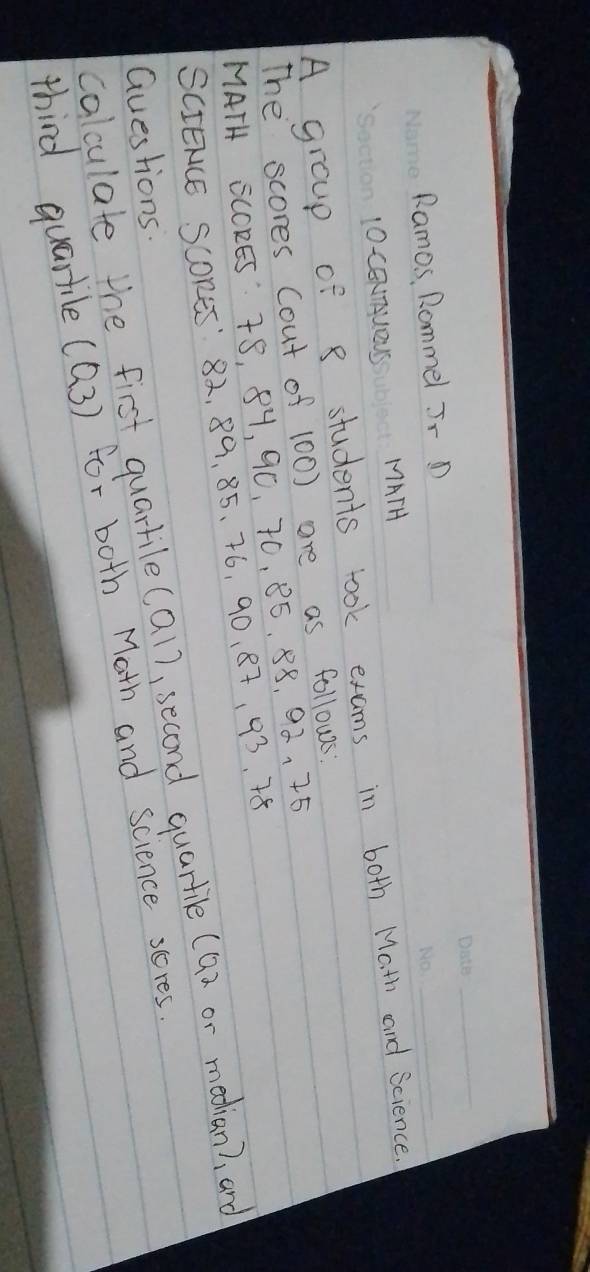 Date
No.
Name Ramos, Rommel Jr D
Section 10-CENTAURUS Subject: MATH
A group of 8 students took exams in both Math and Science.
The scores (out of 100) are as follows:
MATH SCORES: 78, 84, 90, 70, 85, 88, 92, 75
SCIENCE SCORES: 82, 89, 85, 76, 90, 87, 93, 78
Questions.
Calculate the first quartile (Q1), second quartile (Q2 or median), and
third quartile (Q3) for both Math and Science scores.